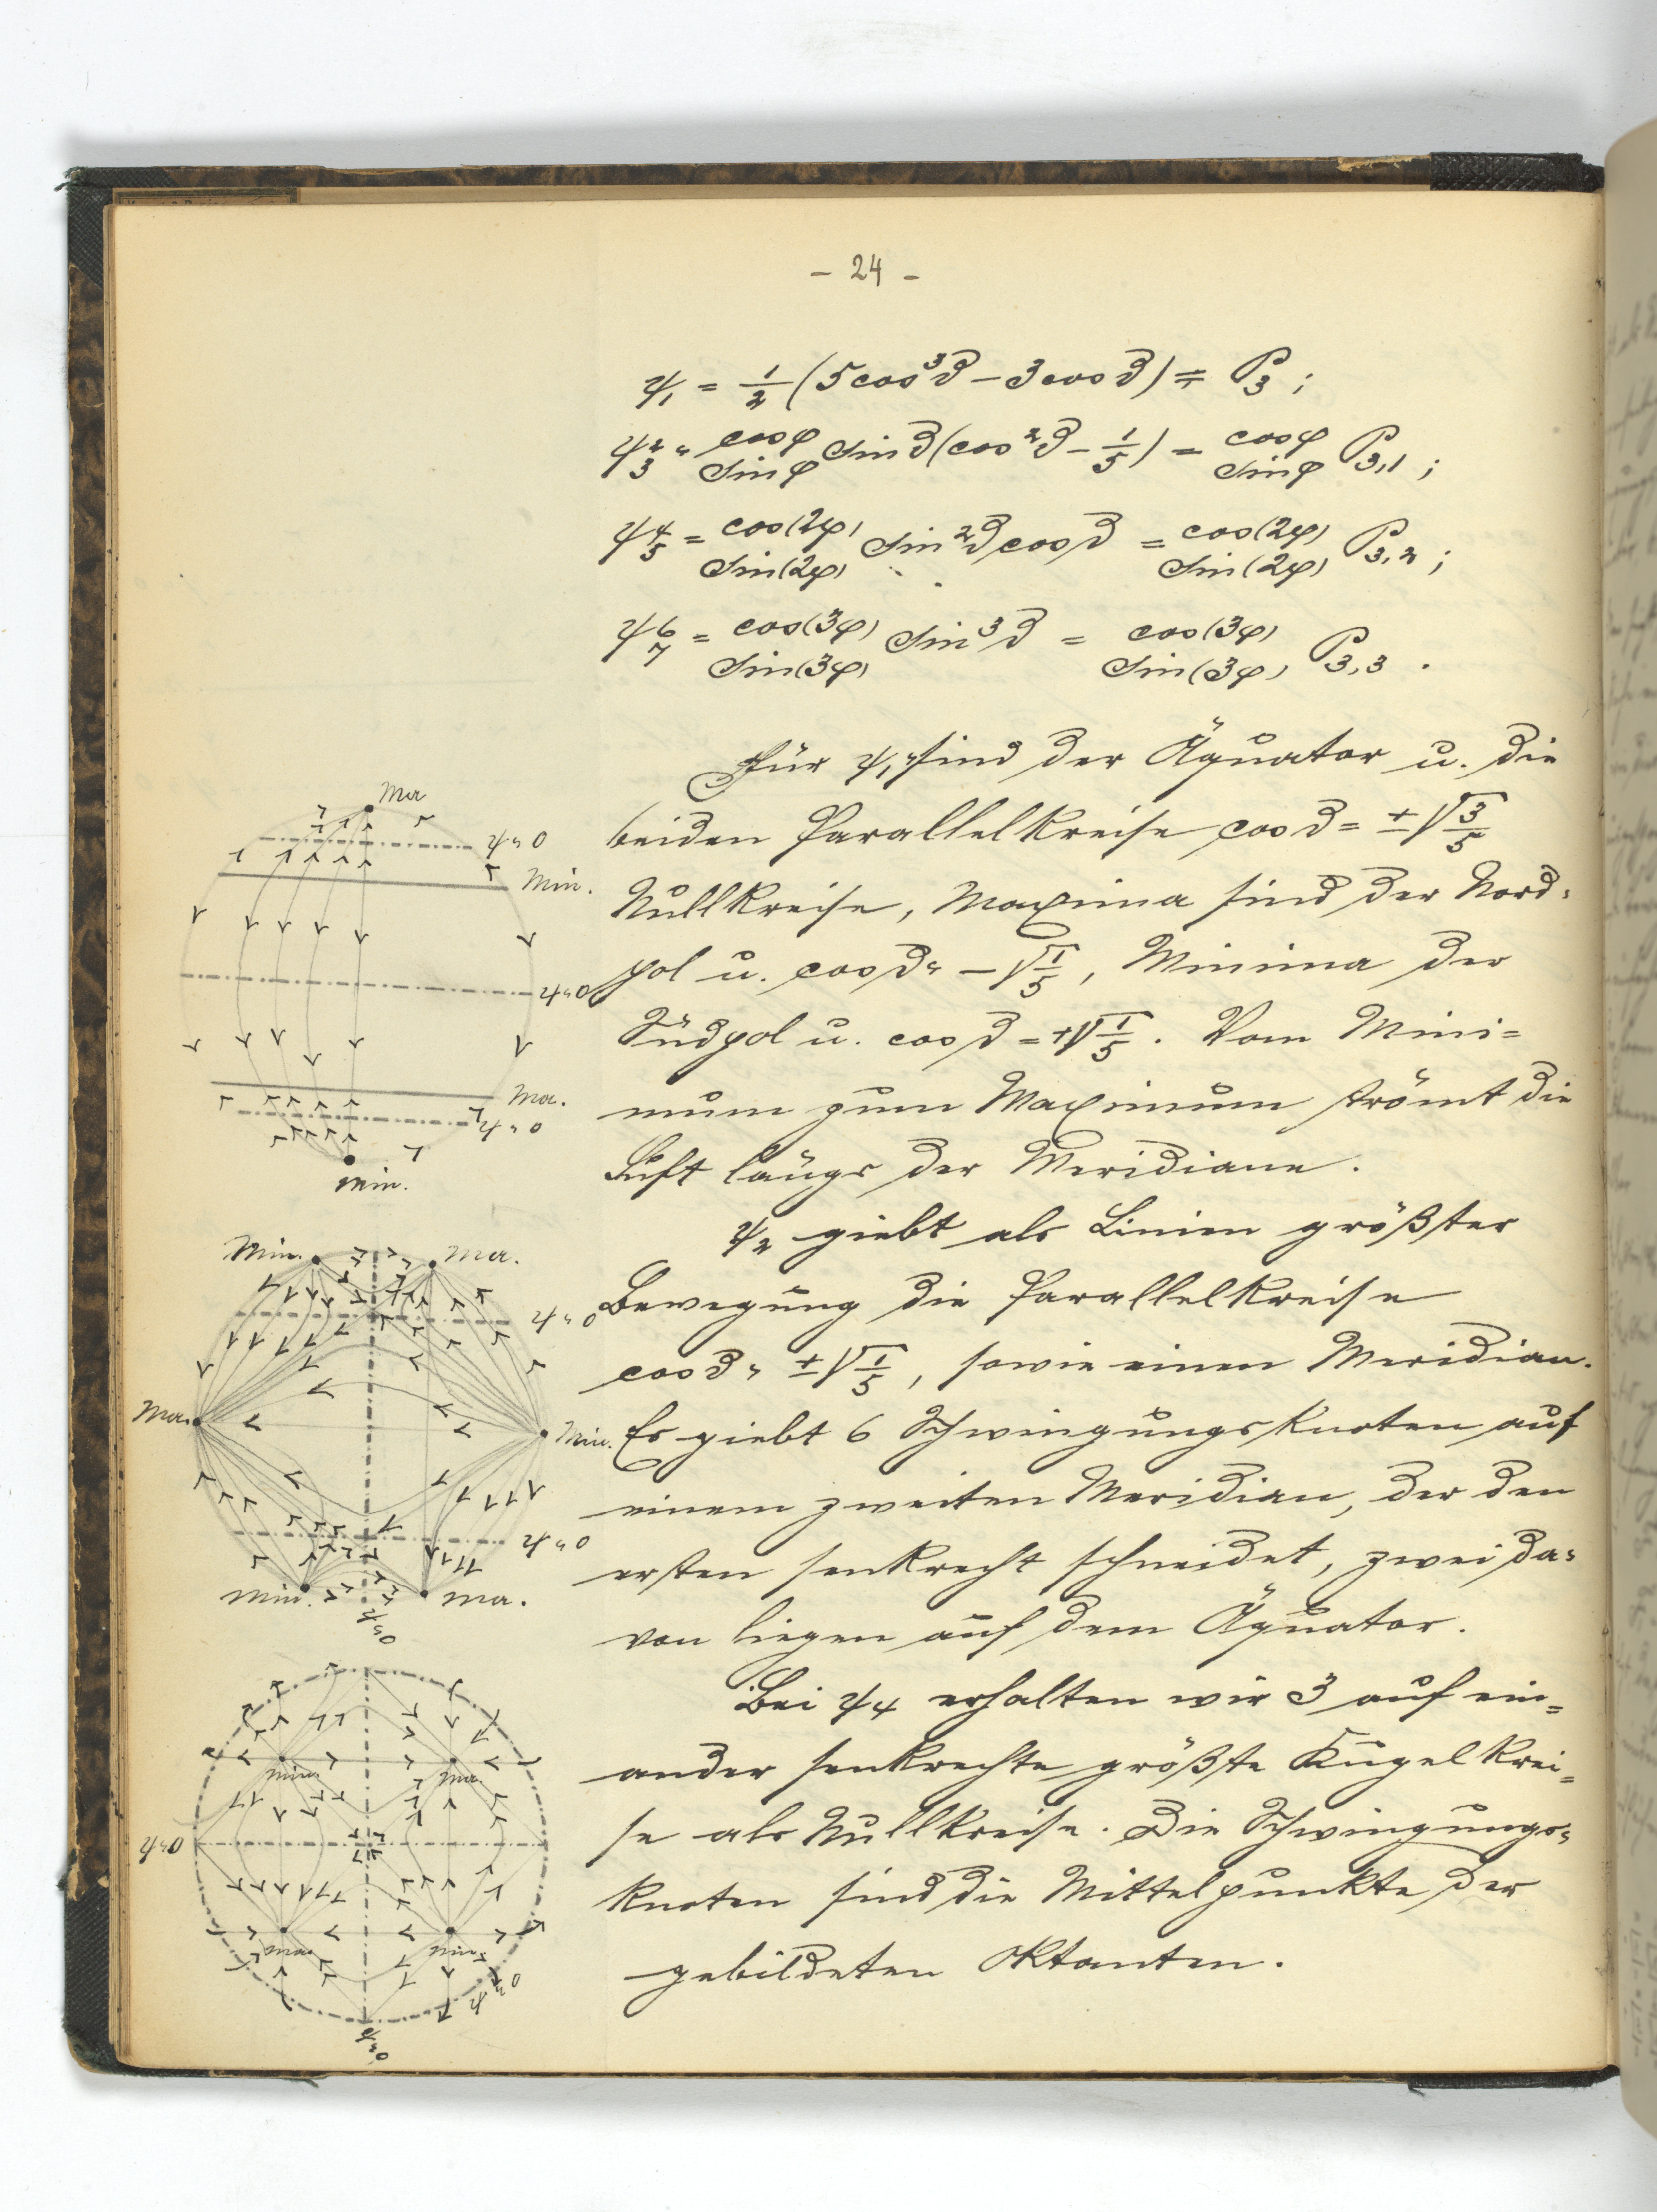 - 24 -
ψ₁ = 1/2 (5 cos³ϑ - 3 cos ϑ) = P₃ ;
ψ 2/3 = cos φ / sin φ sin ϑ (cos²ϑ - 1/5) = cos φ / sin φ P₃,₁ ;
ψ 4/5 = cos(2φ) / sin(2φ) sin²ϑ cos ϑ = cos(2φ) / sin(2φ) P₃,₂ ;
ψ 6/7 = cos(3φ) / sin(3φ) sin³ϑ = cos(3φ) / sin(3φ) P₃,₃ .
Für ψ₁ sind der Äquator u. die
beiden Parallelkreise cos ϑ = ±√3/5
Nullkreise, Maxima sind der Nord=
pol u. cos ϑ = -√1/5, Minima der
Südpol u. cos ϑ = +√1/5. Vom Mini=
mum zum Maximum strömt die
Luft längs der Meridiane.
ψ₂ giebt als Linien größter
Bewegung die Parallelkreise
cos ϑ = ±√1/5, sowie einen Meridian.
Es giebt 6 Schwingungsknoten auf
einem zweiten Meridian, der den
ersten senkrecht schneidet, zwei da=
von liegen auf dem Äquator.
Bei ψ₄ erhalten wir 3 auf ein=
ander senkrechte größte Kugelkrei=
se als Nullkreise. Die Schwingungs=
knoten sind die Mittelpunkte der
gebildeten Oktanten.
Ma
ψ=0
Min.
ψ=0
Ma.
ψ=0
Min.
Min.
Ma.
ψ=0
Ma.
Min.
ψ=0
Min.
Ma.
ψ=0
Min.
Ma.
ψ=0
Ma.
Min.
ψ=0
ψ=0